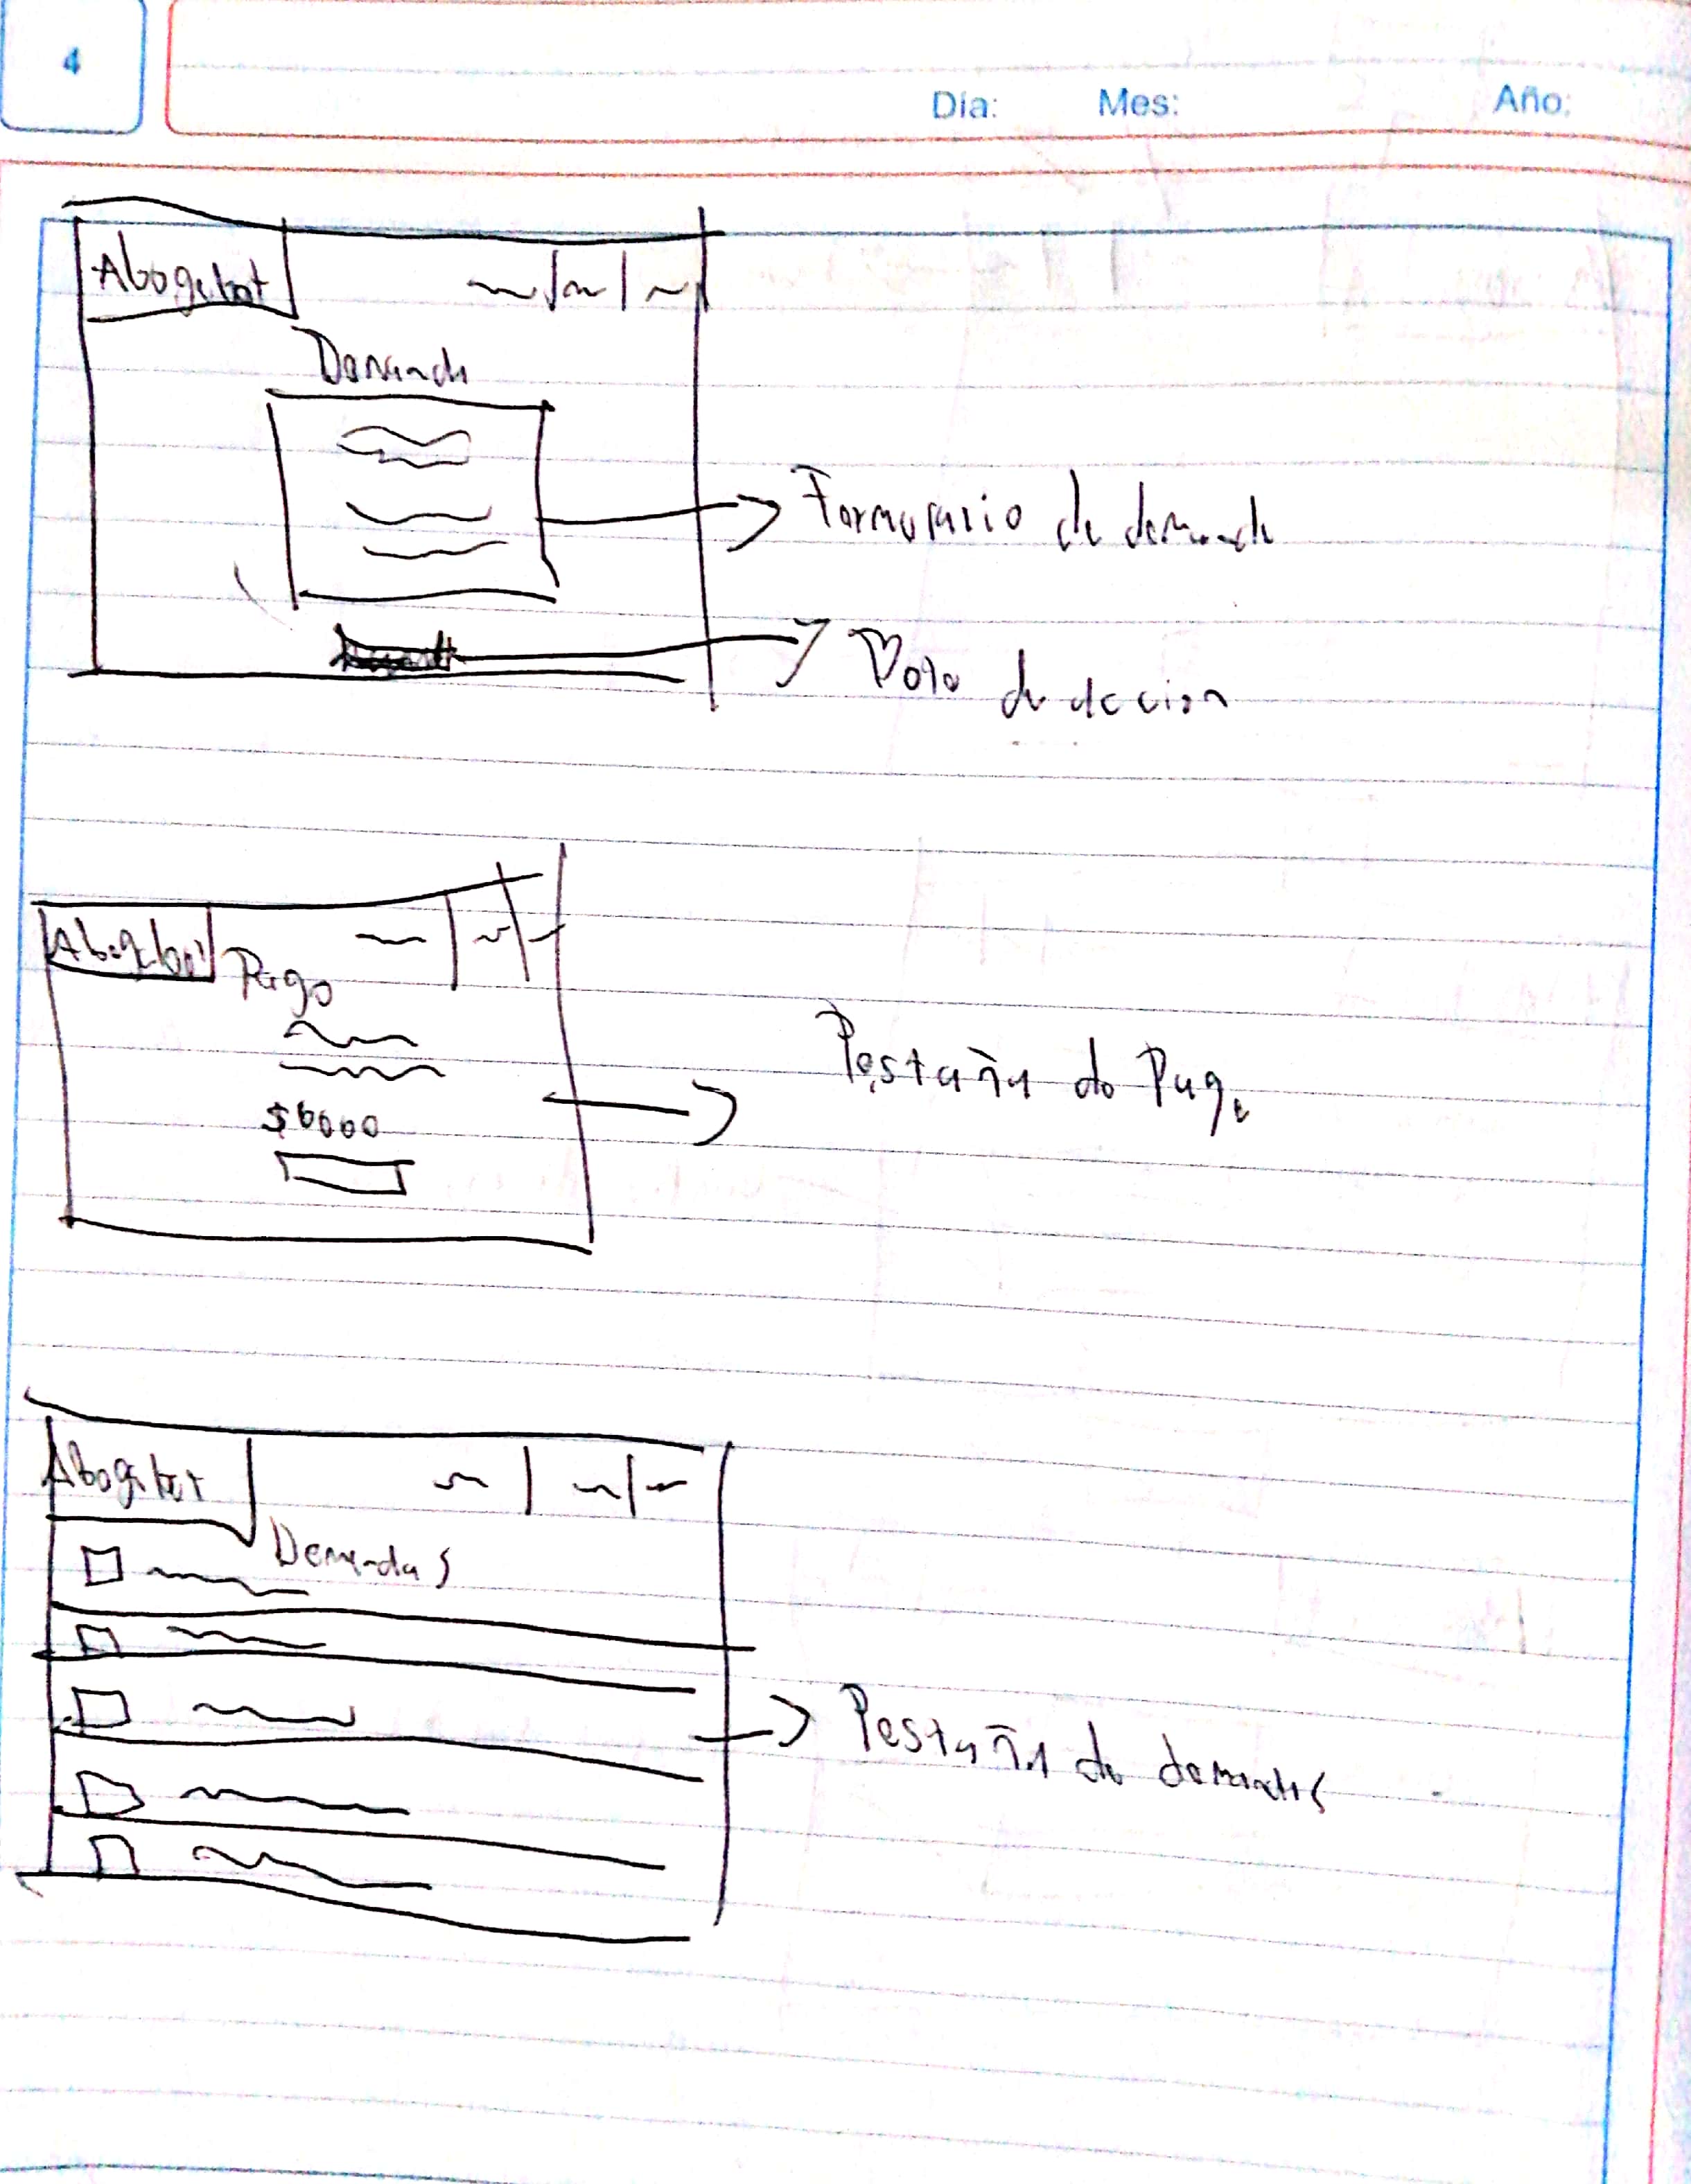 4
Día: Mes: Año:
Abogabot
Demanda
Formulario de demanda
de accion
Abogabot
Pago
$6000
Pestaña de Pago
Abogabot
Demandas
Pestaña de demandas